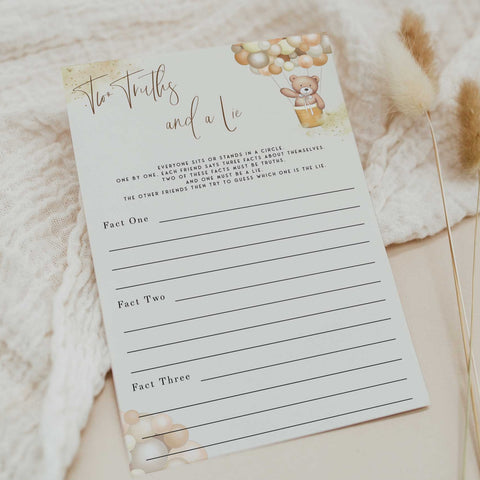 Two Truths
and a Lie
EVERYONE SITS OR STANDS IN A CIRCLE.
ONE BY ONE, EACH FRIEND SAYS THREE FACTS ABOUT THEMSELVES.
TWO OF THESE FACTS MUST BE TRUTHS,
AND ONE MUST BE A LIE.
THE OTHER FRIENDS THEN TRY TO GUESS WHICH ONE IS THE LIE.
Fact One
Fact Two
Fact Three